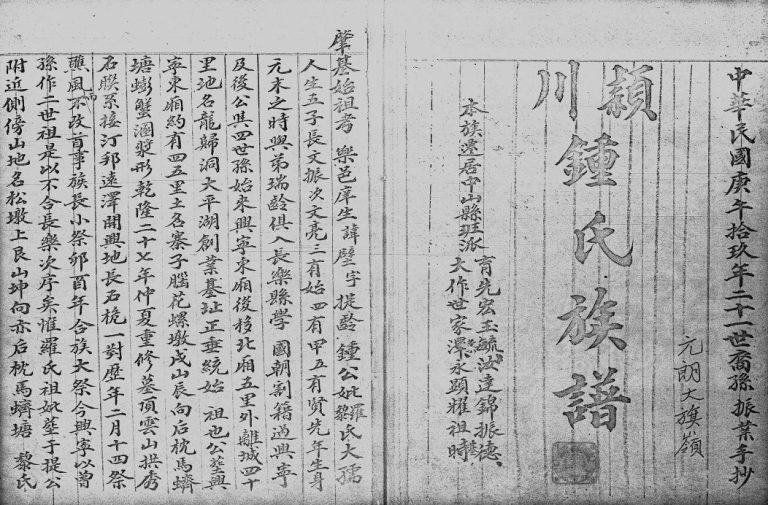 中華民國庚午拾玖年二十一世裔孫振業手抄
元朗大旗嶺
穎川
鍾氏族譜
育先宏玉毓汝達錦振德、
本族遷居中山縣班派
大作世家澤永顯耀祖時
肇基始祖考 樂邑庠生諱壁字提齡 鍾公妣羅黎氏大孺
人生五子長文振次文亮三有始四有甲五有賢先年生身
元末之時與弟瑞齡俱入長樂縣學 國朝割籍過興寧
及後公與四世孫始來興寧東廂後移北廂五里外離城四十
里地名龍歸洞大平湖創業基址正垂統始 祖也公塟興
寧東廂約有四五里土名寨子腦花螺墩戌山辰向后枕馬蠐
塘蟛蟹涸漿形乾隆二十七年仲夏重修墓頂雲山拱秀
石聯系接汀邦遠澤開興地長石桅一對歷年二月十四祭
醮風雨不改首事族長小祭卯酉年合族大祭今興寧以曾
孫作二世祖是以不合長樂次序矣惟羅氏祖妣塟于提公
附近側傍山地名松墩上艮山坤向亦后枕馬蠐塘 黎氏